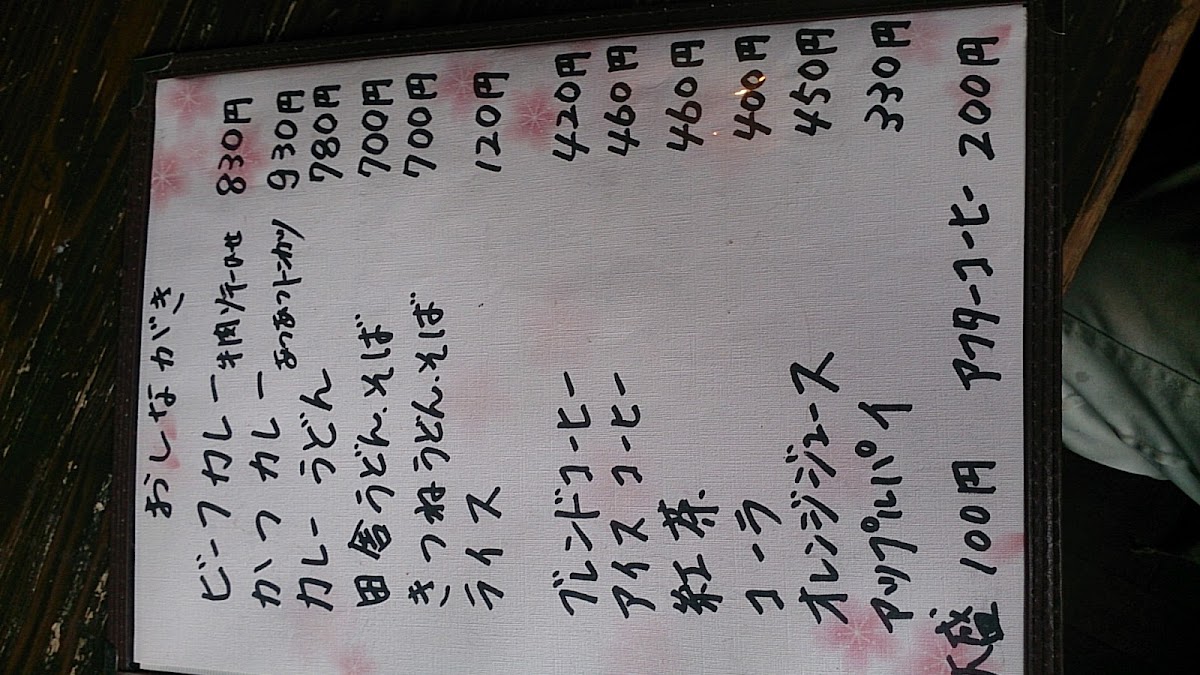 おしながき
ビーフカレー 牛肉ソテーのせ 830円
かつカレー あつあつトンカツ 930円
カレーうどん 780円
田舎うどん.そば 700円
きつねうどん.そば 700円
ライス 120円
ブレンドコーヒー 420円
アイスコーヒー 460円
紅茶. 460円
コーラ 400円
オレンジジュース 450円
アップルパイ 330円
大盛 100円 アフターコーヒー 200円